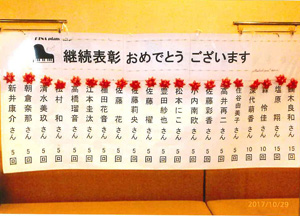 継続表彰 おめでとう ございます
木良和さん 15回
塩原 翔さん 15回
怜佳さん 10回
代萌香さん 10回
住谷由美子さん 5回
高井再二さん 5回
佐藤彩香さん 5回
小内南欧さん 5回
松本にこさん 5回
豊田紗也さん 5回
佐藤 櫂さん 5回
佐藤莉央さん 5回
佐藤 花さん 5回
棚田花音さん 5回
江本圭汰さん 5回
高橋瑠音さん 5回
松村 和さん 5回
清水美玖さん 5回
朝倉奈那さん 5回
新井康介さん 5回
2017/10/29